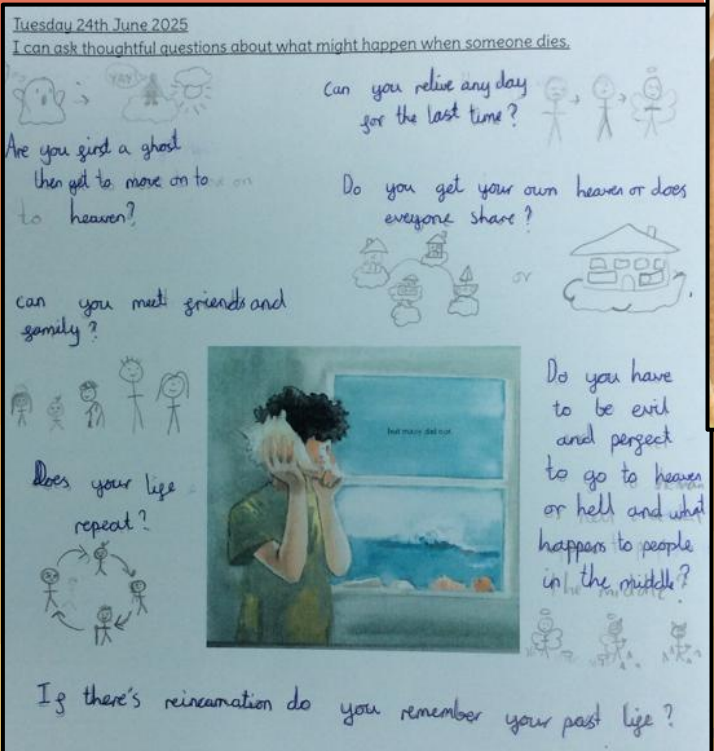 Tuesday 24th June 2025
I can ask thoughtful questions about what might happen when someone dies.
YAY!
Are you first a ghost
then get to move on to
to heaven?
Can you relive any day
for the last time?
Do you get your own heaven or does
everyone share?
or
can you meet friends and
family?
but mary did not
Do you have
to be evil
and perfect
to go to heaven
or hell and what
happens to people
in the middle?
Does your life
repeat?
If there's reincarnation do you remember your past life?